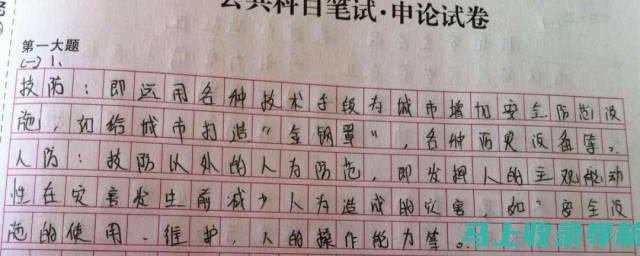 公共科目笔试·申论试卷
第一大题
(一)1、
技防：即运用各种技术手段为城市增加安全防范设
施，如给城市打造“金钢罩”，各种预见设备等。
人防：技防以外的人为防范，即发挥人的主观能动
性在灾害发生前减少人为造成的灾害，如“安全设
施的使用、维护，人的操作能力等。
马上收录导航